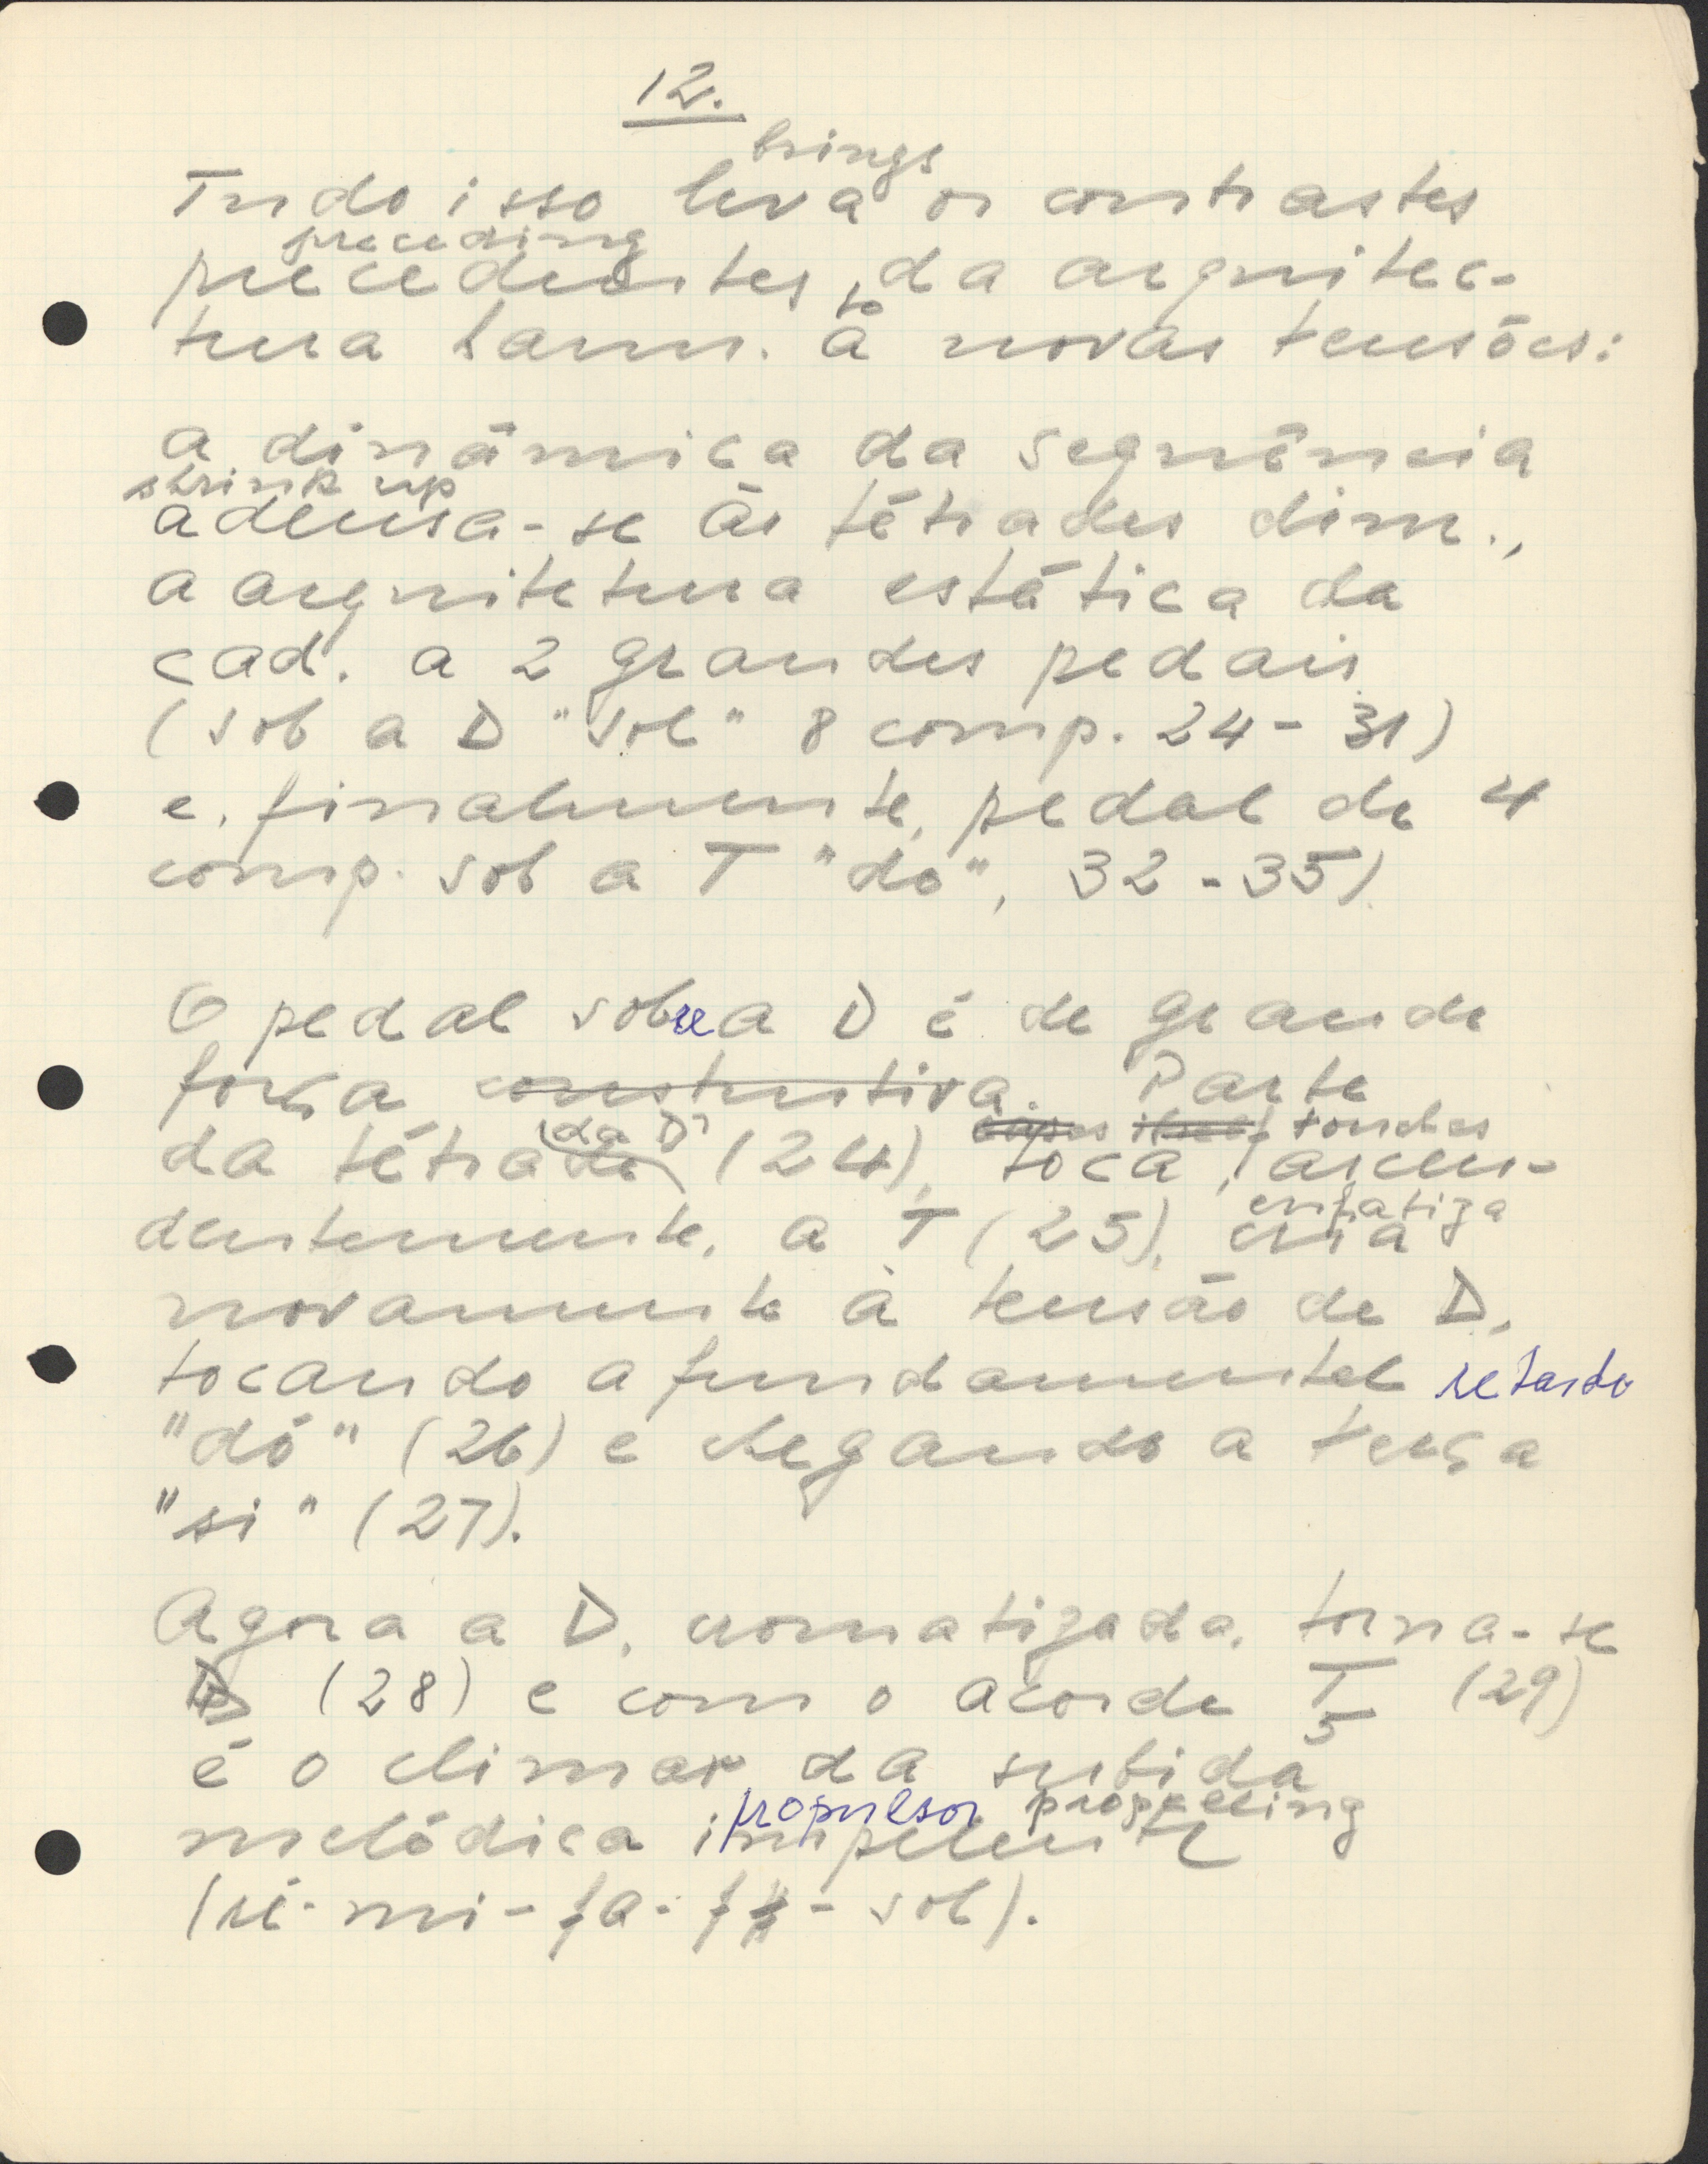 12.
brings
Tudo isso leva os contrastes
preceding
precedentes da arquitec-
to
tura harm. à novas tensões:
a dinâmica da sequência
shrink up
adensa-se às tétrades dim.,
a arquitetura estática da
cad. a 2 grandes pedais
(sob a D "sol" 8 comp. 24-31)
e, finalmente, pedal de 4
comp. sob a T "do", 32-35)
O pedal sobre a D é de grande
força construtiva. Parte
(da D) touches
da tétrade (24), toca, ascen-
enfatiza
dentemente, a T (25), cria
novamente à tensão de D,
tocando a fundamental retardo
"dó" (26) e chegando a terça
"si" (27).
Agora a D, cromatizada, torna-se
(28) e com o acorde T (29)
5
é o climax da subida
propulsor propelling
melódica impelente
(ré-mi-fa-f#-sol).